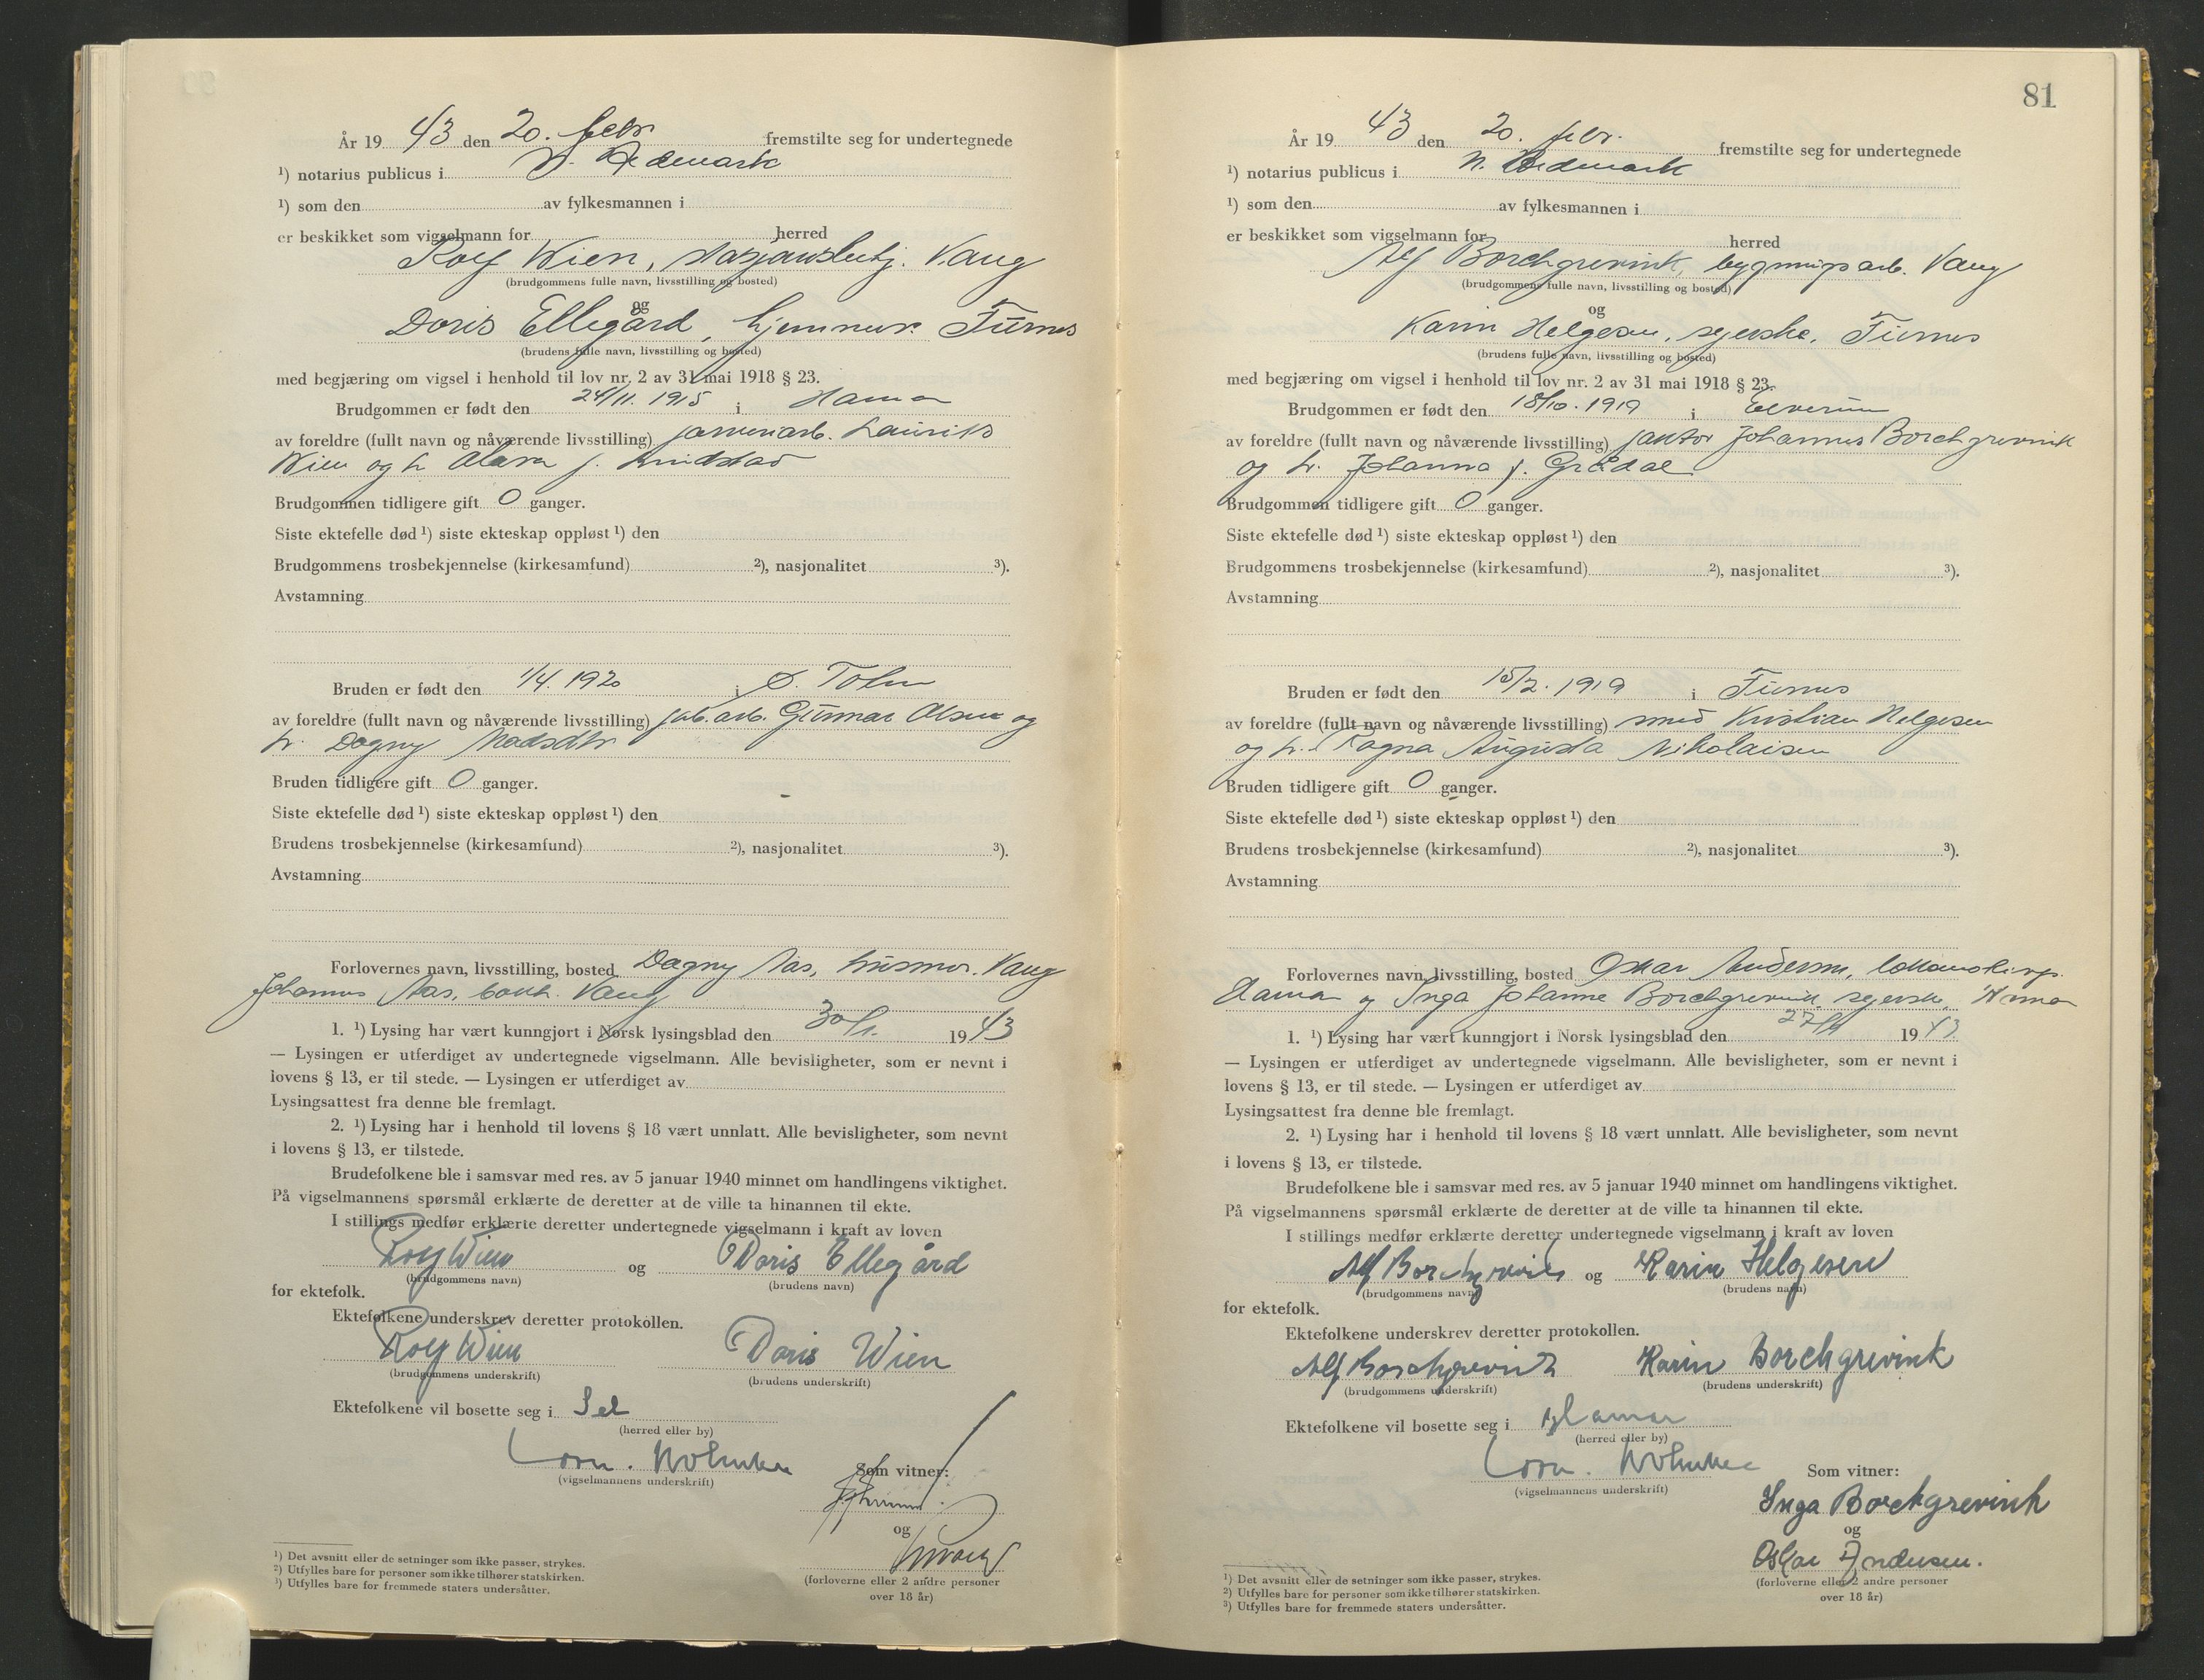 År 19 43 den 20. febr. fremstilte seg for undertegnede
¹) notarius publicus i N. Hedemark
¹) som den av fylkesmannen i
er beskikket som vigselmann for herred
Rolf Wien, stasjonsbetj. Vang
(brudgommens fulle navn, livsstilling og bosted)
og
Doris Ellegård, hjemmev. Furnes
(brudens fulle navn, livsstilling og bosted)
med begjæring om vigsel i henhold til lov nr. 2 av 31 mai 1918 § 23.
Brudgommen er født den 24/11. 1915 i Hamar
av foreldre (fullt navn og nåværende livsstilling) Lauritz
Wien og h. f. Lundstad
Brudgommen tidligere gift 0 ganger.
Siste ektefelle død ¹) siste ekteskap oppløst ¹) den
Brudgommens trosbekjennelse (kirkesamfund) ²), nasjonalitet ³).
Avstamning
Bruden er født den 1/4. 1920 i Ø. Toten
av foreldre (fullt navn og nåværende livsstilling) fab.arb. Gunnar Olsen og
h. Dagny Madsdtr
Bruden tidligere gift 0 ganger.
Siste ektefelle død ¹) siste ekteskap oppløst ¹) den
Brudens trosbekjennelse (kirkesamfund) ²), nasjonalitet ³).
Avstamning
Forlovernes navn, livsstilling, bosted Dagny Aas, husmor. Vang
Johannes Aas, Vang
1. ¹) Lysing har vært kunngjort i Norsk lysingsblad den 30/1. 19 43
— Lysingen er utferdiget av undertegnede vigselmann. Alle bevisligheter, som er nevnt i
lovens § 13, er til stede. — Lysingen er utferdiget av
Lysingsattest fra denne ble fremlagt.
2. ¹) Lysing har i henhold til lovens § 18 vært unnlatt. Alle bevisligheter, som nevnt
i lovens § 13, er tilstede.
Brudefolkene ble i samsvar med res. av 5 januar 1940 minnet om handlingens viktighet.
På vigselmannens spørsmål erklærte de deretter at de ville ta hinannen til ekte.
I stillings medfør erklærte deretter undertegnede vigselmann i kraft av loven
Rolf Wien og Doris Ellegård
(brudgommens navn) (brudens navn)
for ektefolk.
Ektefolkene underskrev deretter protokollen.
Rolf Wien Doris Wien
(brudgommens underskrift) (brudens underskrift)
Ektefolkene vil bosette seg i Sel
(herred eller by)
(vigselmannens underskrift) Som vitner:
og
(forloverne eller 2 andre personer
over 18 år)
¹) Det avsnitt eller de setninger som ikke passer, strykes.
²) Utfylles bare for personer som ikke tilhører statskirken.
³) Utfylles bare for fremmede staters undersåtter.
81
År 19 43 den 20. febr. fremstilte seg for undertegnede
¹) notarius publicus i N. Hedemark
¹) som den av fylkesmannen i
er beskikket som vigselmann for herred
Alf Borchgrevink, bygningsarb. Vang
(brudgommens fulle navn, livsstilling og bosted)
og
Karin Helgesen, syerske, Furnes
(brudens fulle navn, livsstilling og bosted)
med begjæring om vigsel i henhold til lov nr. 2 av 31 mai 1918 § 23.
Brudgommen er født den 18/10. 1919 i Elverum
av foreldre (fullt navn og nåværende livsstilling) Johannes Borchgrevink
og h. Johanna f. Grødal
Brudgommen tidligere gift 0 ganger.
Siste ektefelle død ¹) siste ekteskap oppløst ¹) den
Brudgommens trosbekjennelse (kirkesamfund) ²), nasjonalitet ³).
Avstamning
Bruden er født den 15/2. 1919 i Furnes
av foreldre (fullt navn og nåværende livsstilling) smed Kristian Helgesen
og h. Ragna Augusta Nikolaisen
Bruden tidligere gift 0 ganger.
Siste ektefelle død ¹) siste ekteskap oppløst ¹) den
Brudens trosbekjennelse (kirkesamfund) ²), nasjonalitet ³).
Avstamning
Forlovernes navn, livsstilling, bosted Oskar Andersen,
Hamar og Inga Johanne Borchgrevink, syerske, Hamar
1. ¹) Lysing har vært kunngjort i Norsk lysingsblad den 19 43
— Lysingen er utferdiget av undertegnede vigselmann. Alle bevisligheter, som er nevnt i
lovens § 13, er til stede. — Lysingen er utferdiget av
Lysingsattest fra denne ble fremlagt.
2. ¹) Lysing har i henhold til lovens § 18 vært unnlatt. Alle bevisligheter, som nevnt
i lovens § 13, er tilstede.
Brudefolkene ble i samsvar med res. av 5 januar 1940 minnet om handlingens viktighet.
På vigselmannens spørsmål erklærte de deretter at de ville ta hinannen til ekte.
I stillings medfør erklærte deretter undertegnede vigselmann i kraft av loven
Alf Borchgrevink og Karin Helgesen
(brudgommens navn) (brudens navn)
for ektefolk.
Ektefolkene underskrev deretter protokollen.
Alf Borchgrevink Karin Borchgrevink
(brudgommens underskrift) (brudens underskrift)
Ektefolkene vil bosette seg i Hamar
(herred eller by)
(vigselmannens underskrift) Som vitner:
Inga Borchgrevink
og
Oskar Andersen.
(forloverne eller 2 andre personer
over 18 år)
¹) Det avsnitt eller de setninger som ikke passer, strykes.
²) Utfylles bare for personer som ikke tilhører statskirken.
³) Utfylles bare for fremmede staters undersåtter.